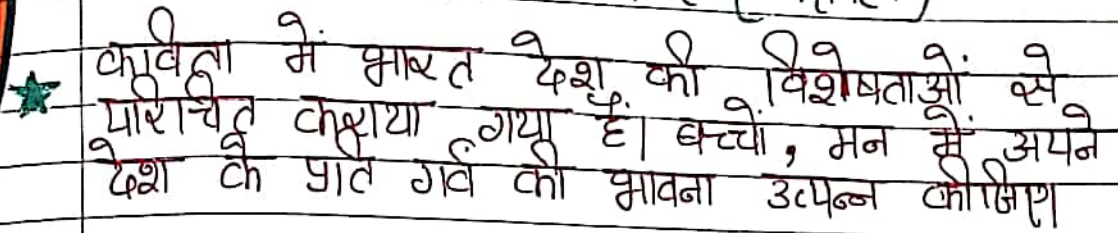 कविता में भारत देश की विशेषताओं से
परिचित कराया गया है। बच्चों, मन में अपने
देश के प्रति गर्व की भावना उत्पन्न कीजिए